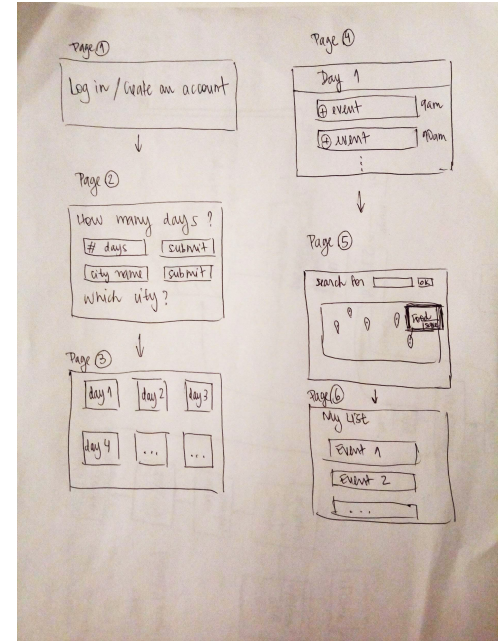 Page 1
Log in / Create an account
Page 2
How many days ?
# days submit
city name submit
which city ?
Page 3
day 1 day 2 day 3
day 4 ... ...
Page 4
Day 1
+ event 9am
+ event 10am
Page 5
search for OK
Food
Page 6
My List
Event 1
Event 2
...